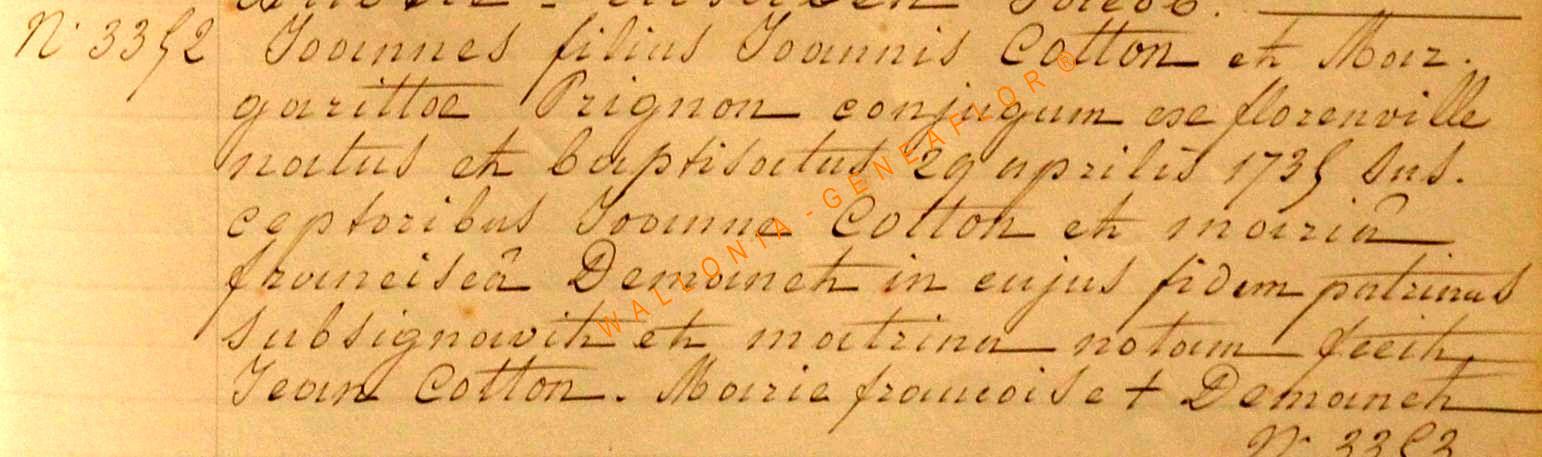 N° 3352 Joannes filius Joannis Cotton et Mar.
garittae Prignon conjugum ex florenville
natus et baptisatus 29 aprilis 1735 Sus.
ceptoribus Joanne Cotton et mariâ
franciscâ Demanet in cujus fidem patrinus
subsignavit et matrina notam fecit,
Jean Cotton. Marie francoise + Demanet
N° 3353
WALLONIA - GENEAFLOR ®